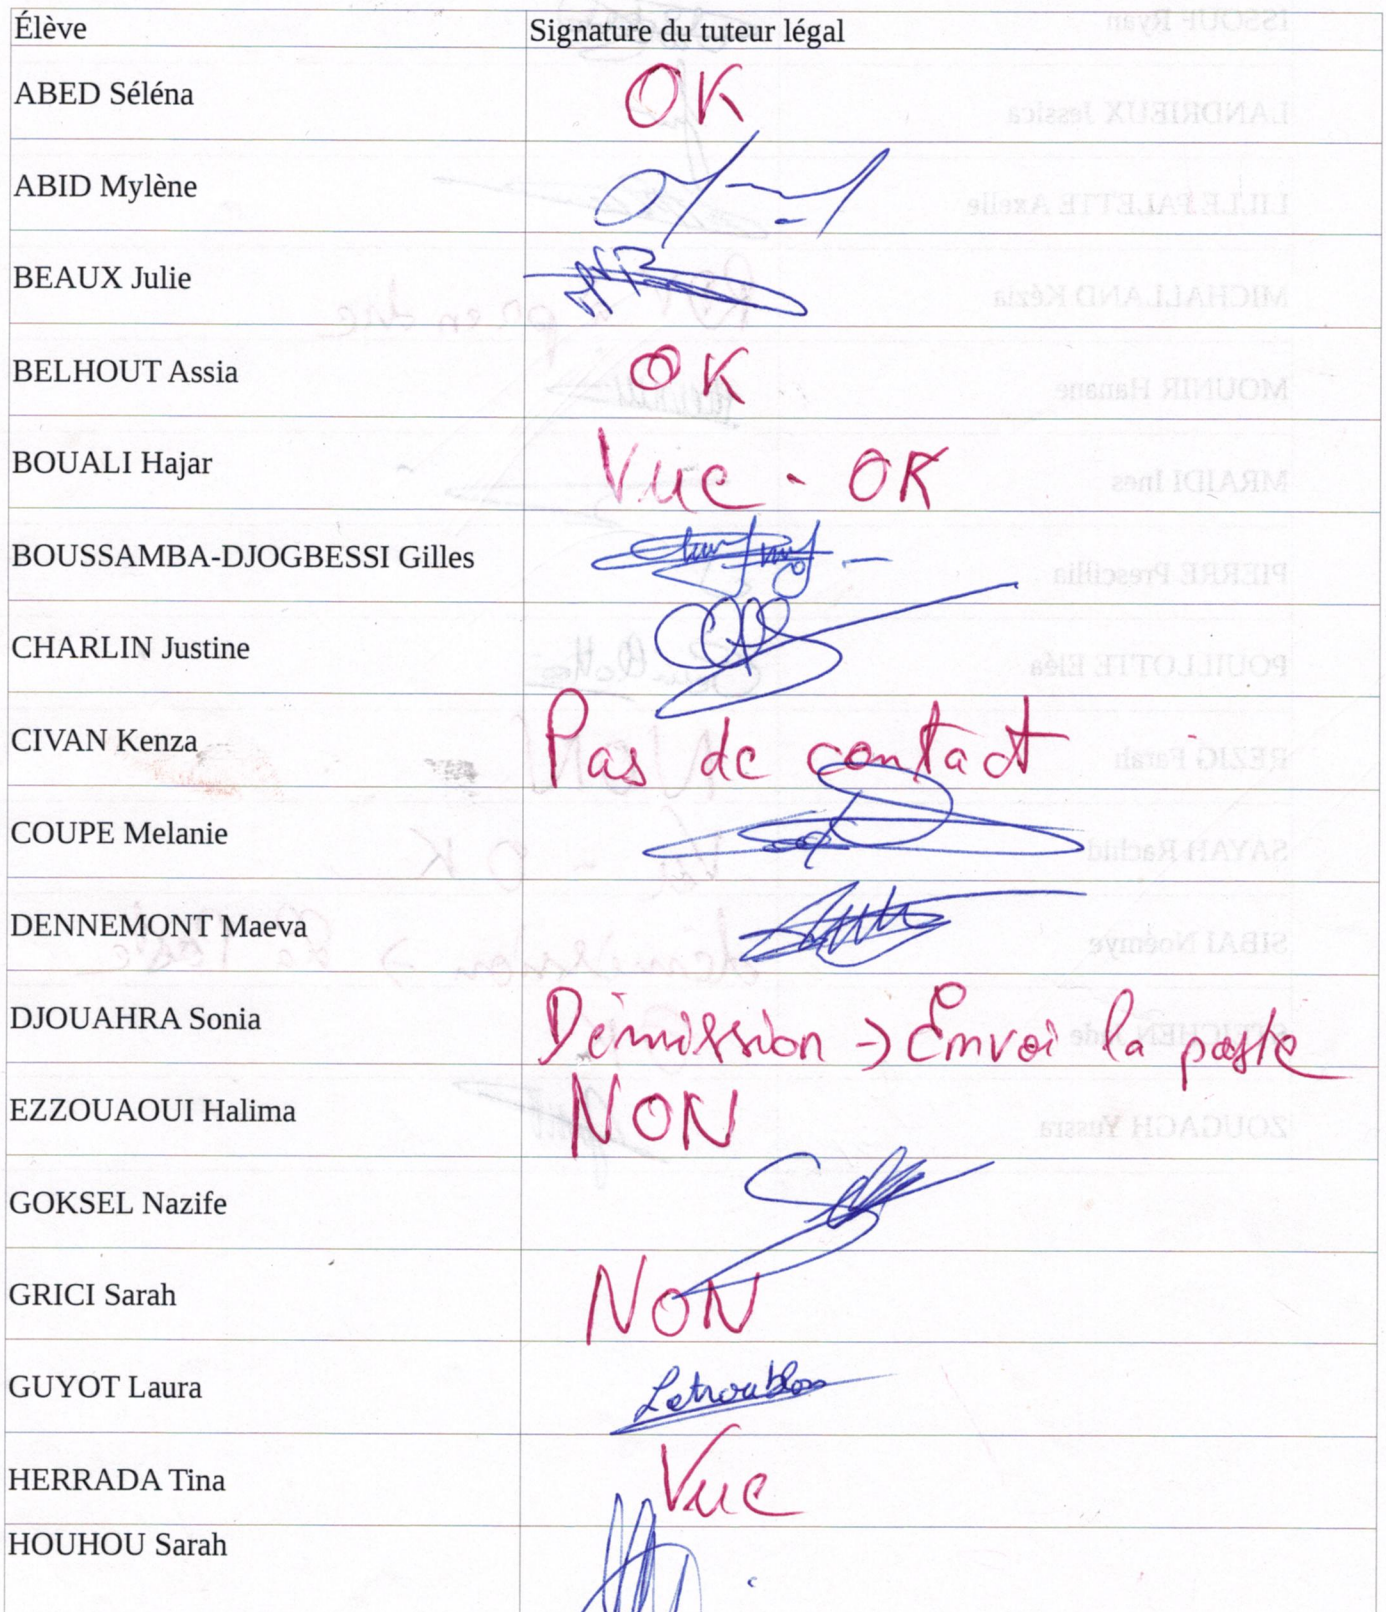 Élève Signature du tuteur légal
ABED Séléna OK
ABID Mylène
BEAUX Julie
BELHOUT Assia OK
BOUALI Hajar Vue - OK
BOUSSAMBA-DJOGBESSI Gilles
CHARLIN Justine
CIVAN Kenza Pas de contact
COUPE Melanie
DENNEMONT Maeva
DJOUAHRA Sonia Démission -> Envoi la poste
EZZOUAOUI Halima NON
GOKSEL Nazife
GRICI Sarah NON
GUYOT Laura
HERRADA Tina Vue
HOUHOU Sarah